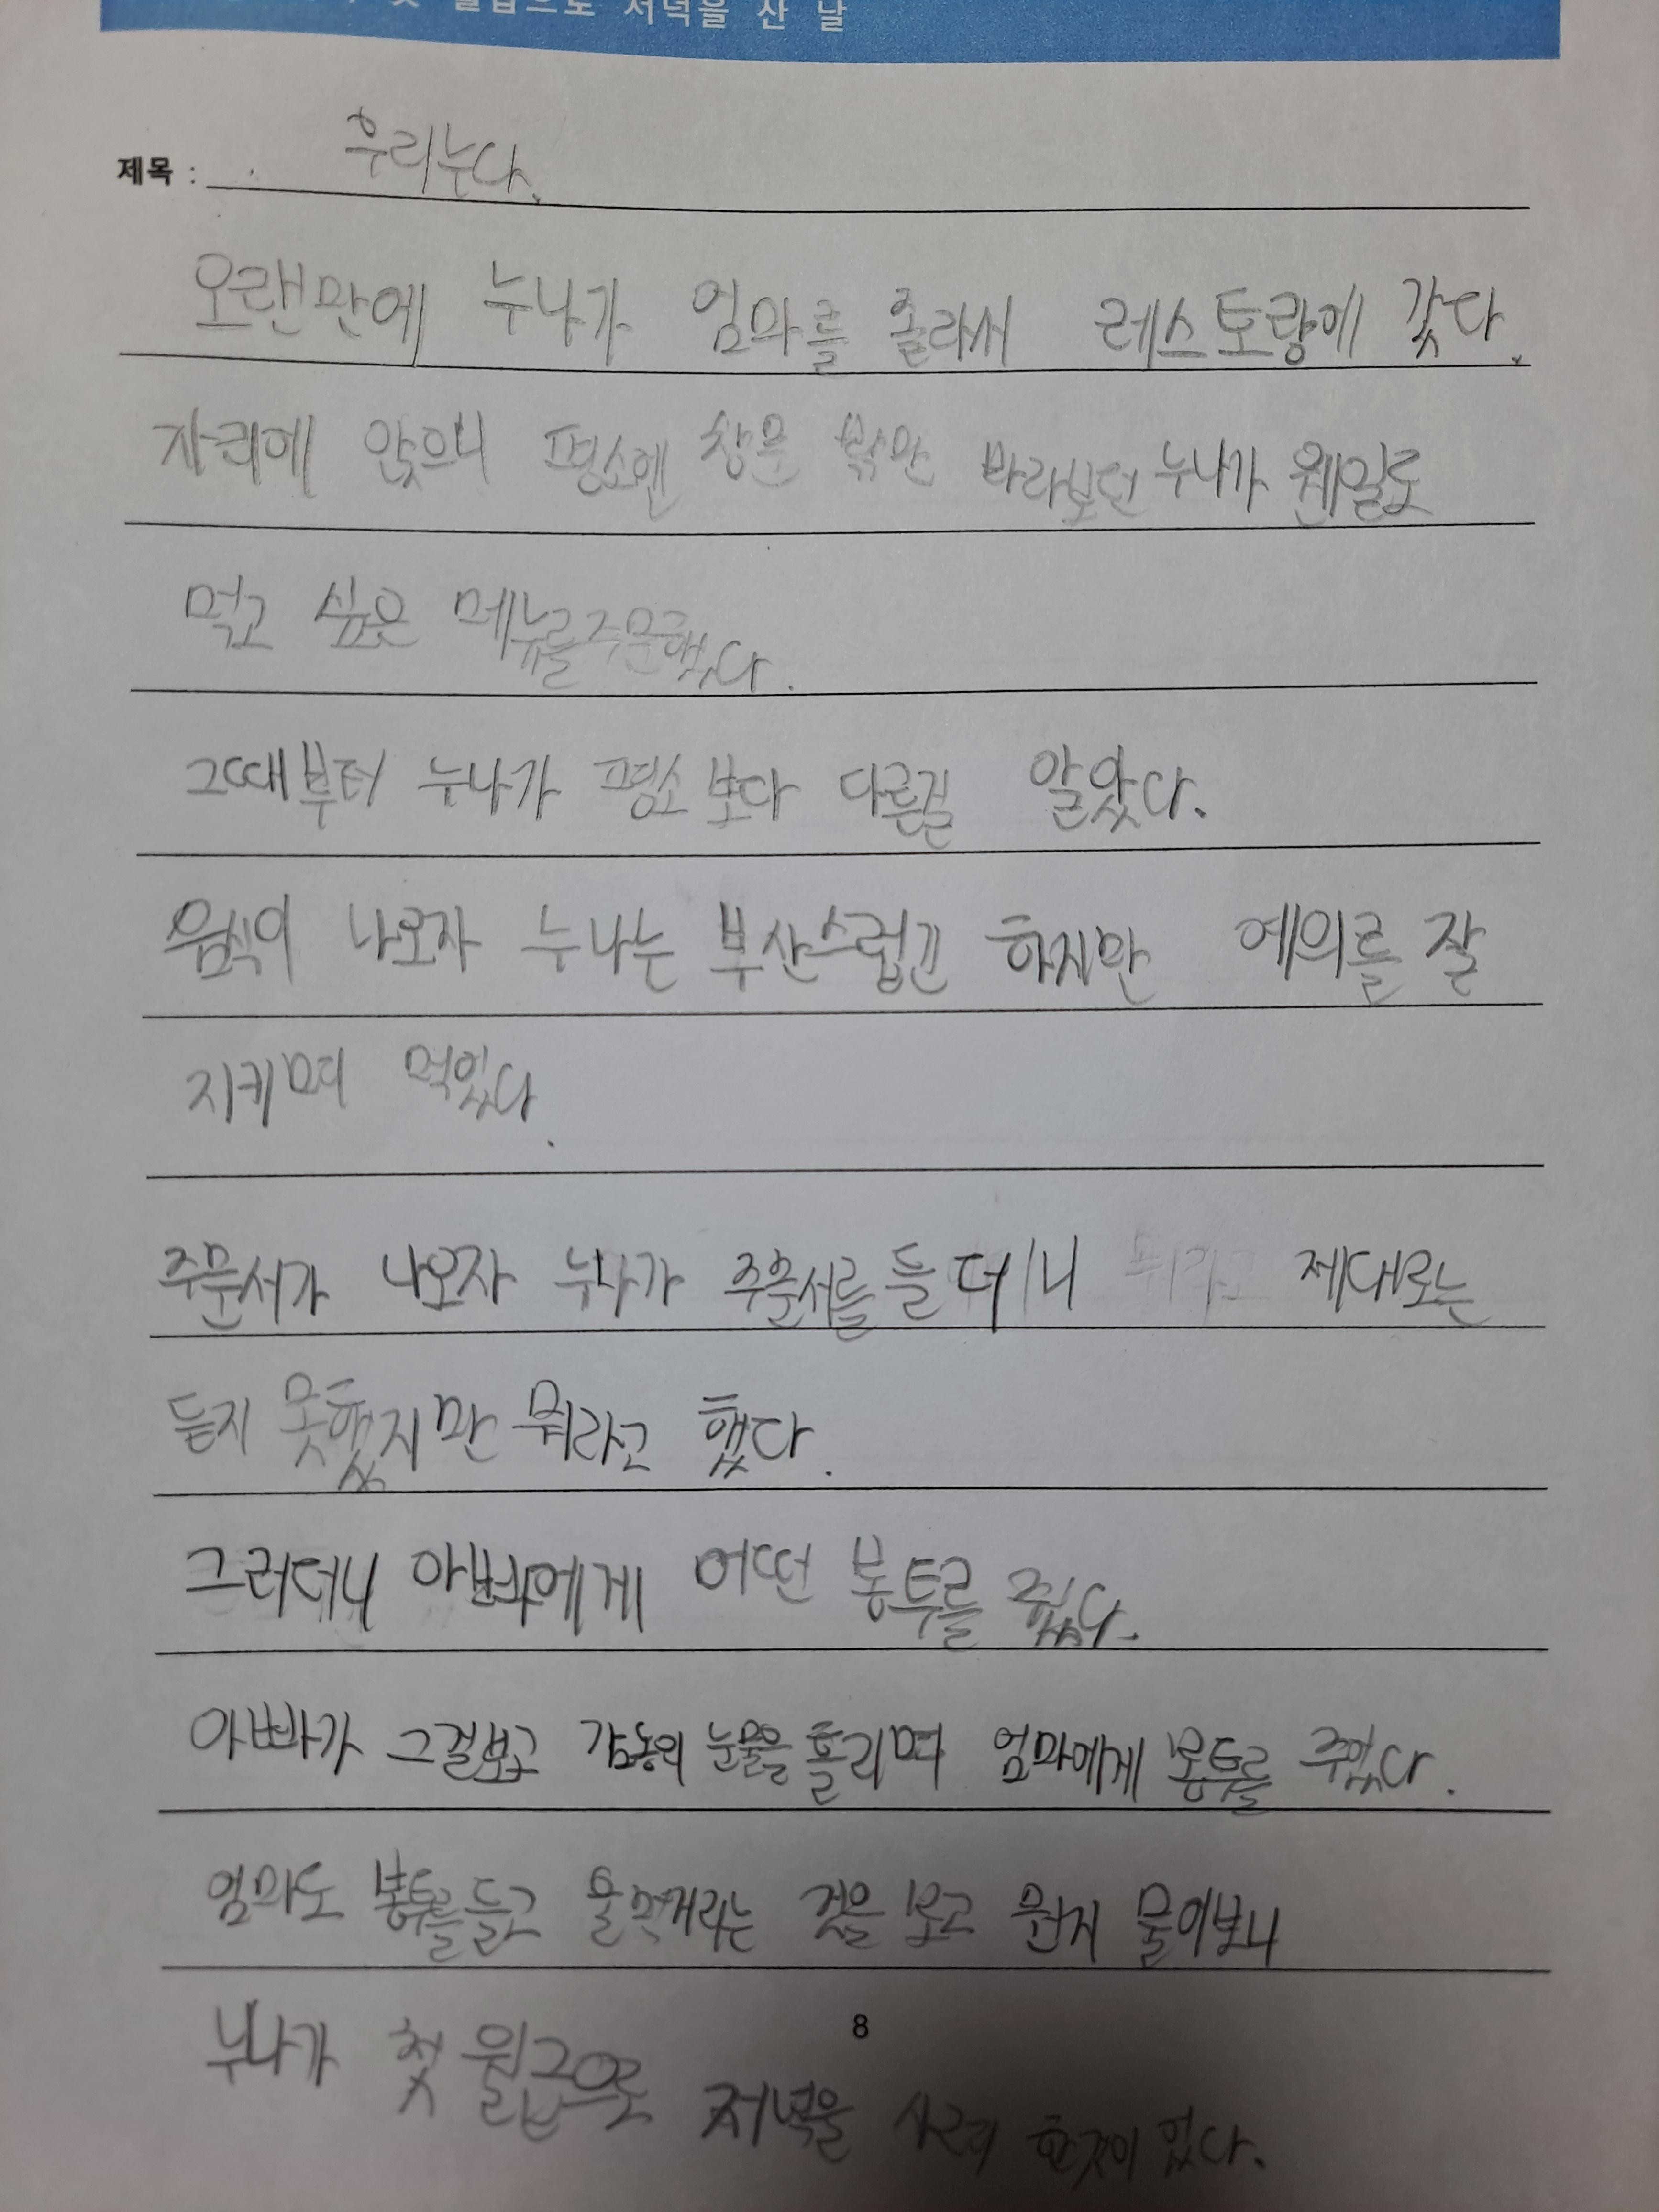 월급으로 저녁을 산 날
제목 : 우리누다.
오랜만에 누나가 엄마를 졸라서 레스토랑에 갔다.
자리에 앉으니 평소엔 창문 밖만 바라보던 누나가 웬일로
먹고 싶은 메뉴를주문했다.
그때부터 누나가 평소보다 다른걸 알았다.
음식이 나오자 누나는 부산스럽긴 하지만 예의를 잘
지키며 먹었다.
주문서가 나오자 누나가 주문서를 들더니 제대로는
듣지 못했지만 뭐라고 했다.
그러더니 아빠에게 어떤 봉투를 줬다.
아빠가 그걸보고 감동의 눈물을 흘리며 엄마에게 봉투를 주었다.
엄마도 봉투를 들고 울먹거리는 것을 보고 뭔지 물어보니
누나가 첫 월급으로 저녁을 사려 한것이 었다.
8